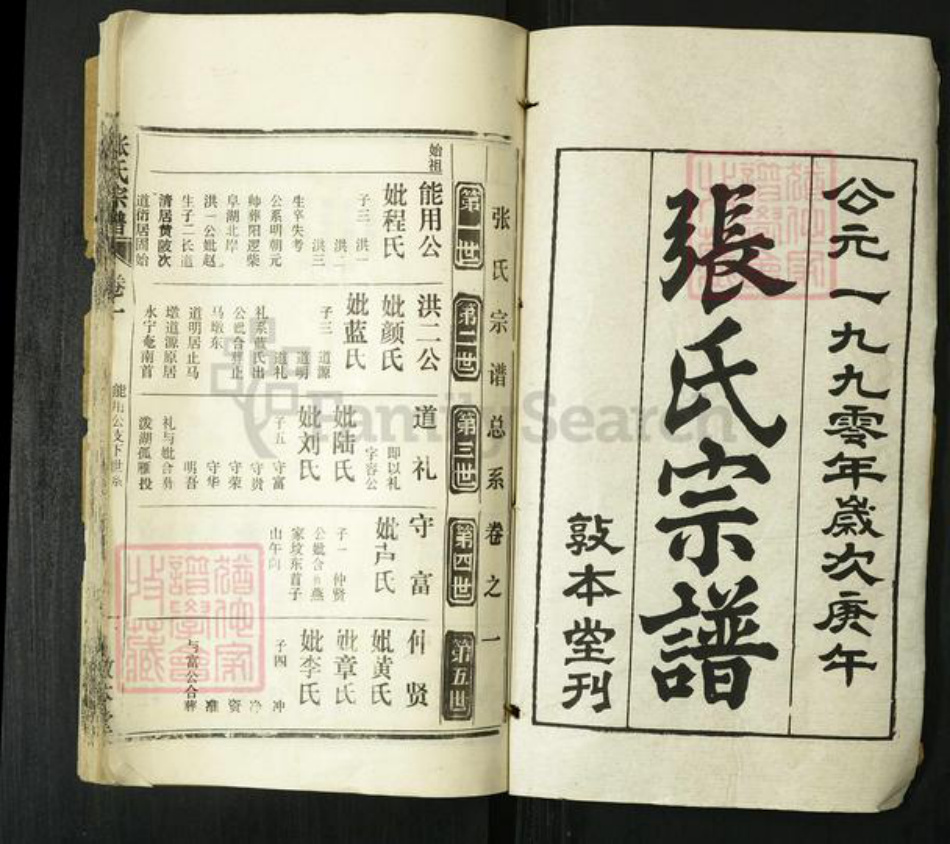 公元一九九零年歲次庚午
張氏宗譜
敦本堂刊
张氏宗谱总系卷之一
第一世
始祖
能用公
妣程氏
子三 洪一
洪二
洪三
生卒失考
公系明朝元
帅葬阳逻柴
阜湖北岸
洪一公妣赵
生子二长道
清居黄陂次
道衍居固始
第二世
洪二公
妣颜氏
妣蓝氏
子三 道源
道明
道礼
礼系蓝氏出
公妣合葬止
马墩东
道明居止马
墩道源原居
永宁庵南首
第三世
道礼
即以礼
字容公
妣陆氏
妣刘氏
子五 守富
守贵
守荣
守华
明吾
礼与妣合葬
泼湖孤雁投
第四世
守富
妣卢氏
子一 仲贤
公妣合葬燕
家坟东首子
山午向
第五世
仲贤
妣黄氏
妣章氏
妣李氏
子四 冲
净
资
准
与富公合葬
张氏宗谱 卷一 能用公支下世系
FamilySearch